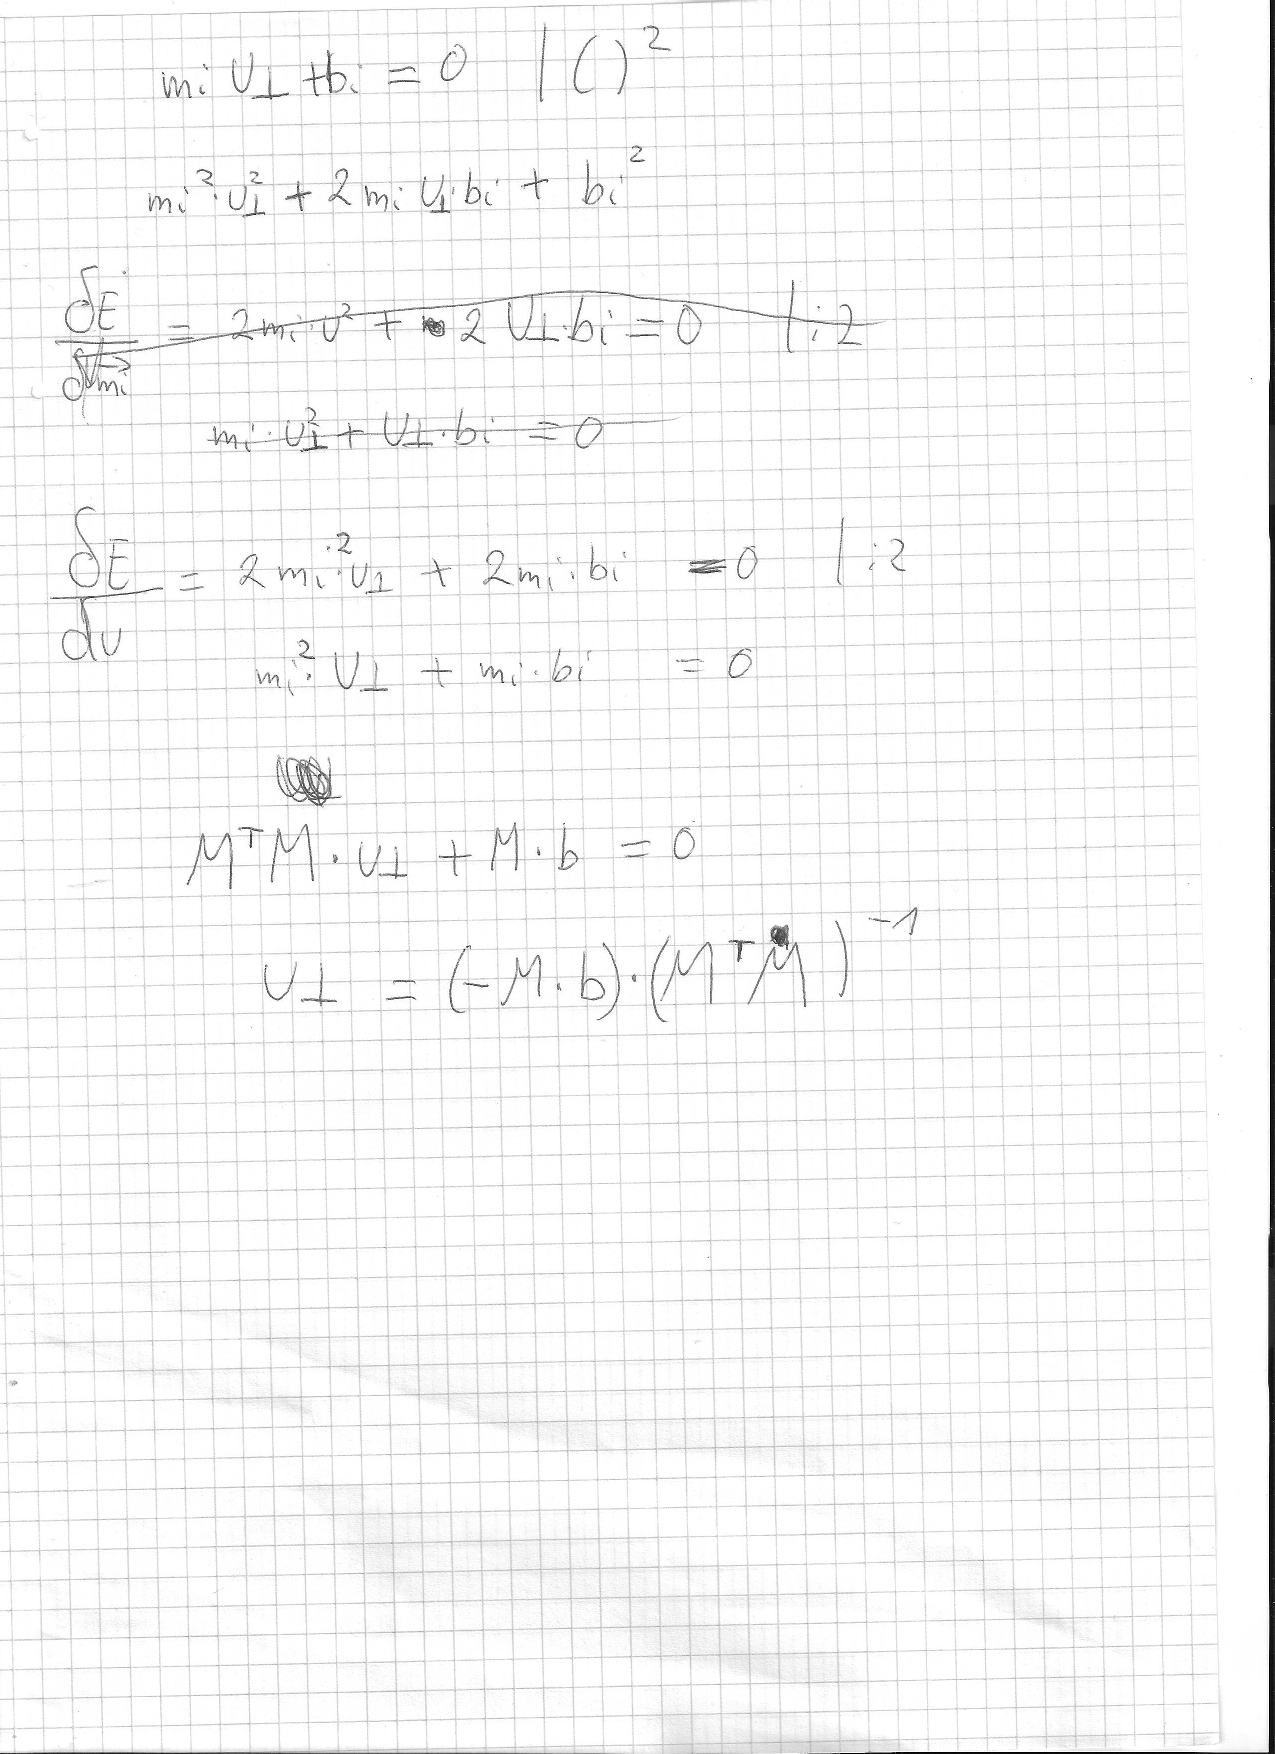 mi U⊥ + bi = 0 | ( )²
mi² · U⊥² + 2 mi U⊥ · bi + bi²
δE/δmi = 2mi · U² + 2 U⊥ · bi = 0 | :2
mi · U⊥² + U⊥ · bi = 0
δE/du = 2 mi² · U⊥ + 2 mi · bi = 0 | :2
mi² · U⊥ + mi · bi = 0
MᵀM · U⊥ + M · b = 0
U⊥ = (-M · b) · (MᵀM)⁻¹